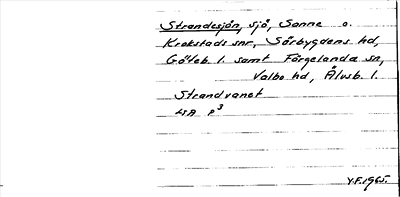 Strandesjön, sjö, Sanne o.
Krokstads snr, Sörbygdens hd,
Göteb. l. samt Färgelanda sn,
Valbo hd, Älvsb. l.
Strandvanet
LSA P3
Y.F. 1965.